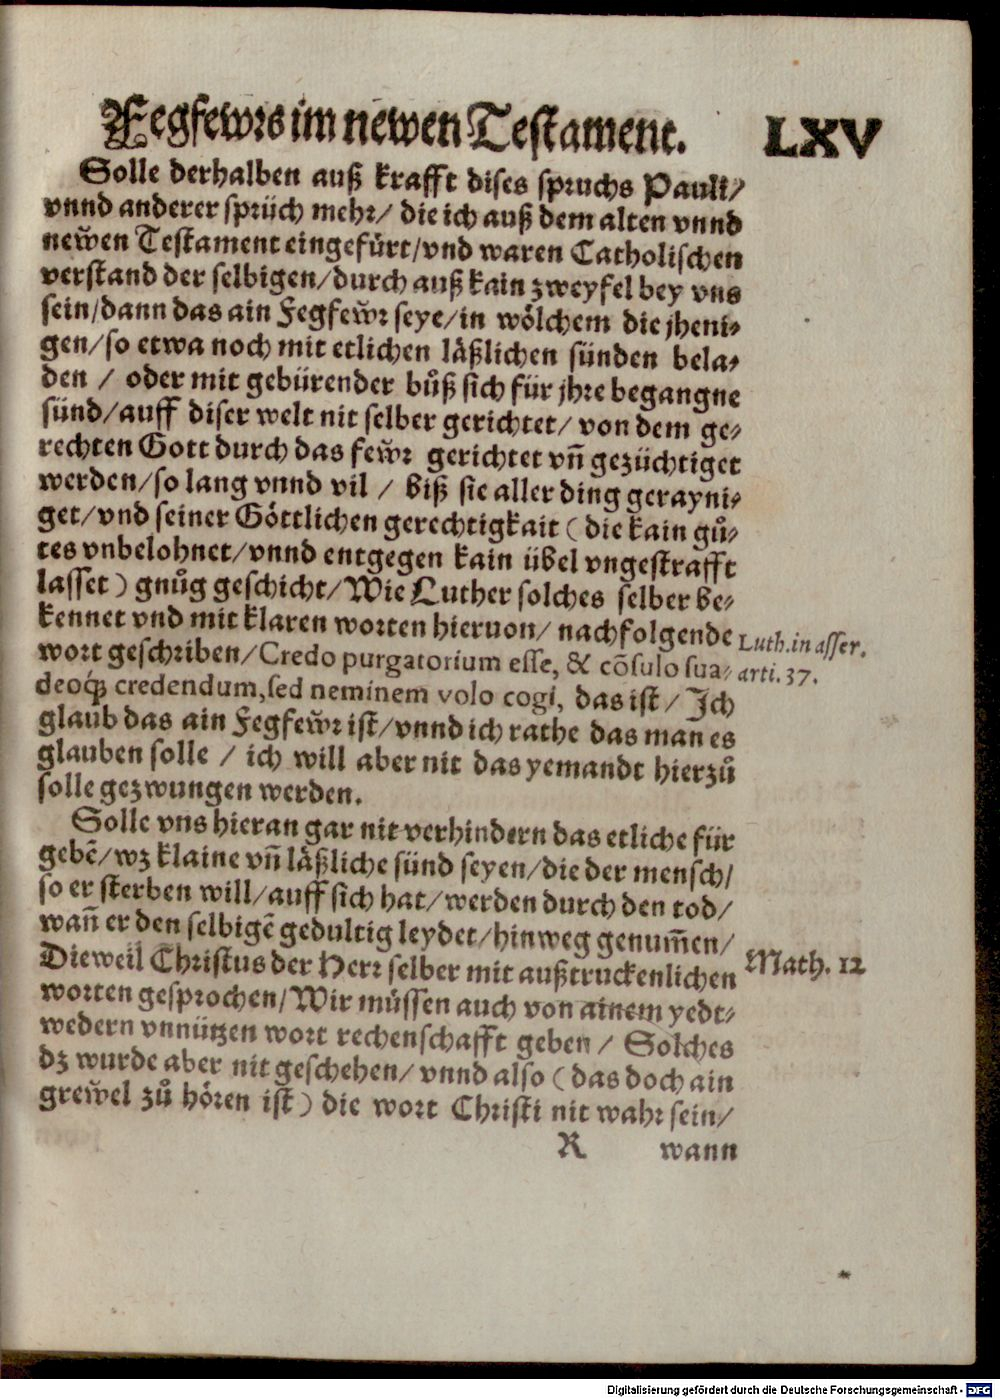 Fegfew̃rs im newen Testament. LXV
Solle derhalben auß krafft dises spruchs Pauli/
vnnd anderer sprüch mehr/ die ich auß dem alten vnnd
new̃en Testament eingefürt/vnd waren Catholischen
verstand der selbigen/durch auß kain zweyfel bey vns
sein/dann das ain Fegfew̃r seye/in wölchem die jheni-
gen/so etwa noch mit etlichen läßlichen sünden bela-
den / oder mit gebürender bůß sich für jhre begangne
sünd/auff diser welt nit selber gerichtet/ von dem ge-
rechten Gott durch das few̃r gerichtet vñ gezüchtiget
werden/so lang vnnd vil / biß sie aller ding gerayni-
get/vnd seiner Göttlichen gerechtigkait (die kain gů-
tes vnbelohnet/vnnd entgegen kain übel vngestrafft
lasset) gnůg geschicht/Wie Luther solches selber be-
kennet vnd mit klaren worten hieruon/ nachfolgende
Luth. in asser.
wort geschriben/Credo purgatorium esse, & cõsulo sua-
arti. 37.
deoq́; credendum,sed neminem volo cogi, das ist/ Ich
glaub das ain Fegfew̃r ist/vnnd ich rathe das man es
glauben solle / ich will aber nit das yemandt hierzů
solle gezwungen werden.
Solle vns hieran gar nit verhindern das etliche für
gebẽ/wz klaine vñ läßliche sünd seyen/die der mensch/
so er sterben will/auff sich hat/werden durch den tod/
wañ er den selbigẽ gedultig leydet/hinweg genum̃en/
Dieweil Christus der Herr selber mit außtruckenlichen
Math. 12
worten gesprochen/Wir müssen auch von ainem yedt-
wedern vnnützen wort rechenschafft geben/ Solches
dz wurde aber nit geschehen/ vnnd also (das doch ain
grew̃el zů hören ist) die wort Christi nit wahr sein/
R wann
Digitalisierung gefördert durch die Deutsche Forschungsgemeinschaft - DFG